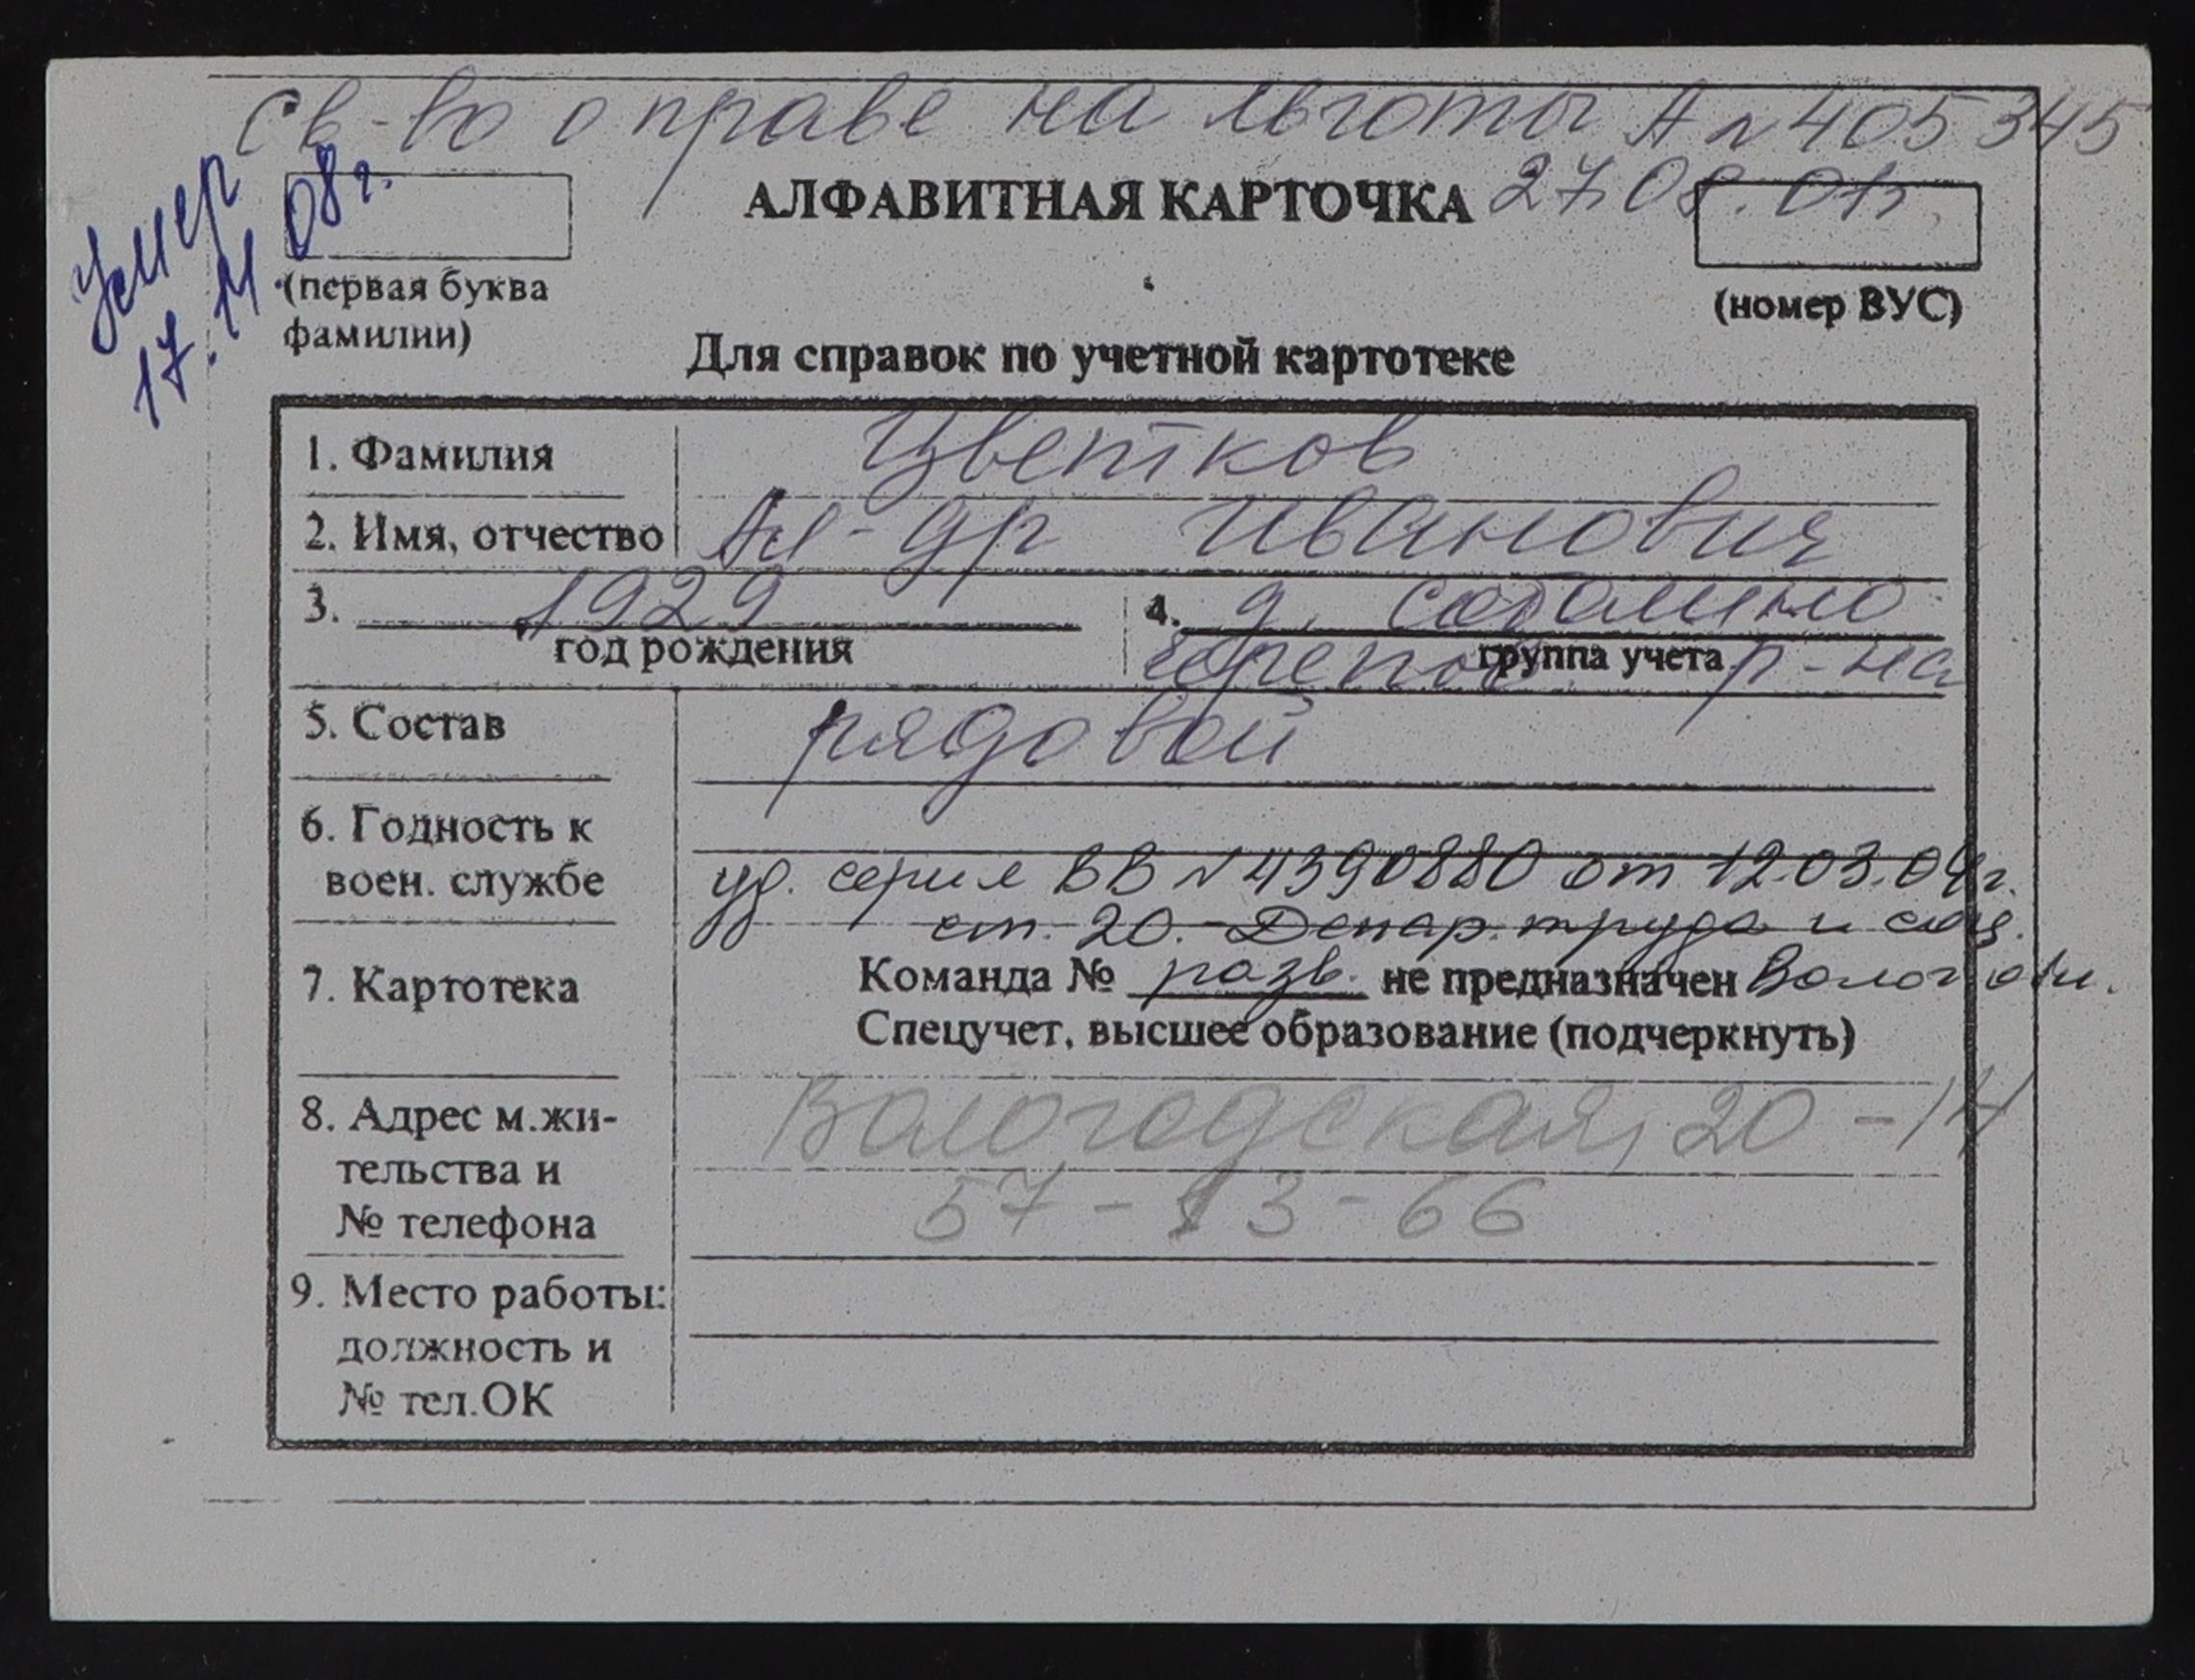 св-во о праве на льготы А № 405345
Умер
17.11.08г.
АЛФАВИТНАЯ КАРТОЧКА 27.08.01г.
(первая буква
фамилии)
(номер ВУС)
Для справок по учетной картотеке
1. Фамилия Цветков
2. Имя, отчество Ал-др Иванович
3. 1929
год рождения
4. д.
Черепов р-на
группа учета
5. Состав рядовой
6. Годность к
воен. службе
уд. серия ВВ № 4390880 от 12.03.04г.
ст. 20. Депар. труда и соц.
7. Картотека
Команда № разв. не предназначен Волог. обл.
Спецучет, высшее образование (подчеркнуть)
8. Адрес м.жи-
тельства и
№ телефона
Вологодская, 20-14
57-13-66
9. Место работы:
должность и
№ тел.ОК